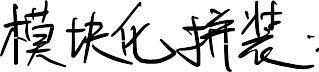 模块化拼装.